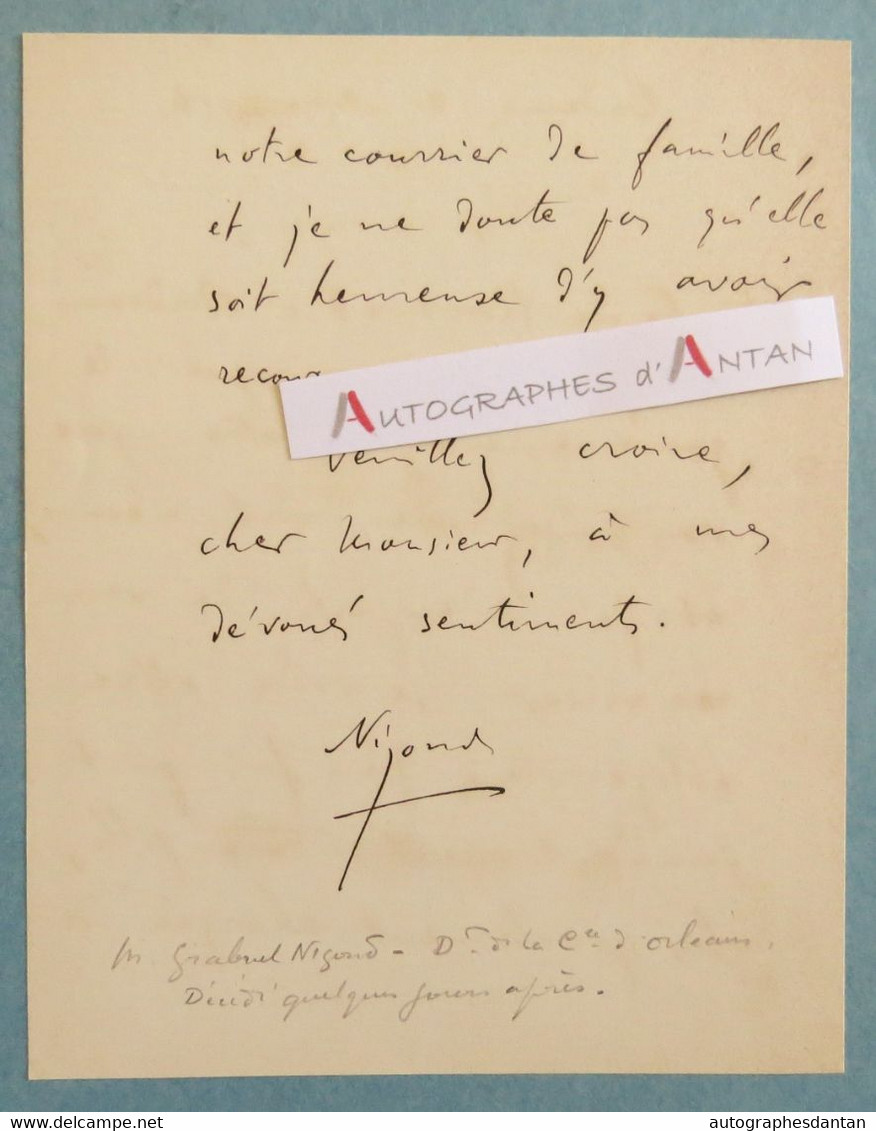 notre courrier de famille,
et je ne doute pas qu'elle
soit heureuse d'y avoir
recours
AUTOGRAPHES d'ANTAN
Veuillez croire,
cher Monsieur, à mes
dévoués sentiments.
Nigond
M. Gabriel Nigond - Dr. de la Cie d'Orléans.
Décédé quelques jours après.
delcampe.net
autographesdantan